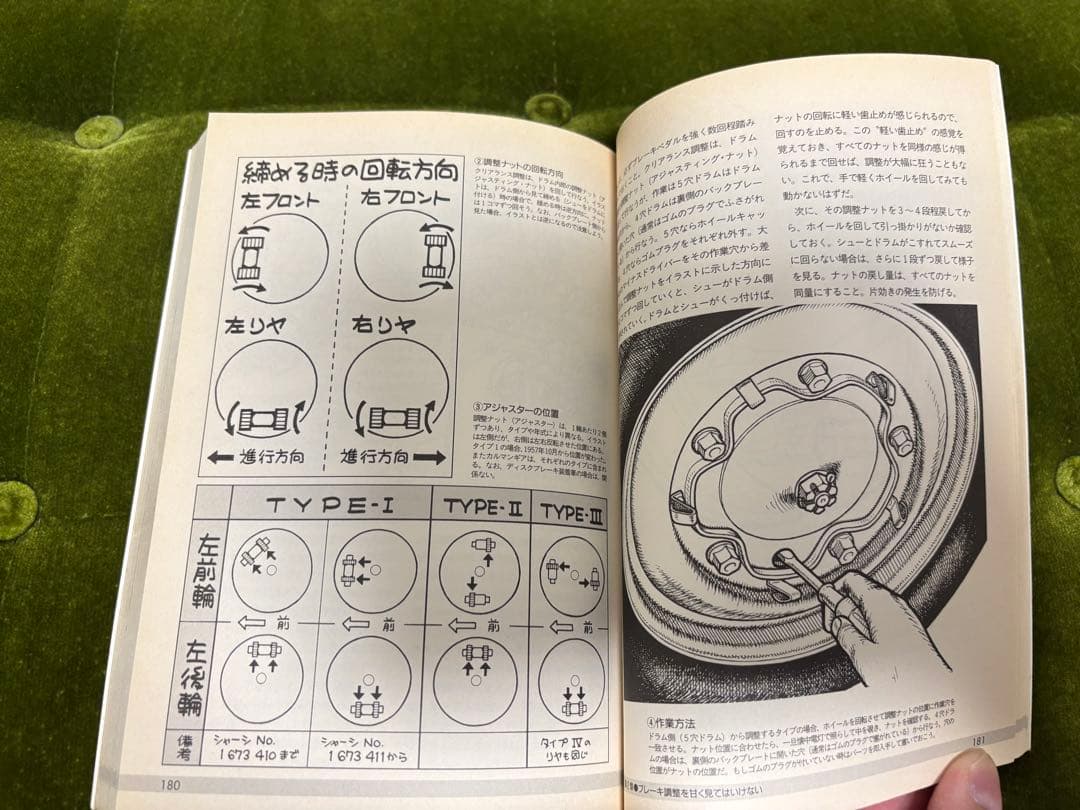 締める時の回転方向
左フロント
右フロント
左リヤ
右リヤ
進行方向
進行方向
②調整ナットの回転方向
クリアランス調整は、ドラム内部の調整ナット(ア
ジャスティング・ナット)を回して行なう。イラス
トは、ドラム側から見て締める(シューをドラムに
付ける)時の場合で、緩める時は逆方向に。
は1コマずつ回そう。なお、バックプレート側から
見た場合、イラストとは逆になるので注意しよう。
③アジャスターの位置
調整ナット(アジャスター)は、1輪あたり2個
ずつあり、タイプや年式により異なる。イラスト
は左側だが、右側は左右反転させた位置にある。
タイプ1の場合、1957年10月から位置が変わった。
またカルマンギアは、それぞれのタイプに含まれ
る。なお、ディスクブレーキ装着車の場合は、関
係ない。
TYPE-I
TYPE-II
TYPE-III
左前輪
前
前
前
前
左後輪
備考
シャーシ No.
1673 410まで
シャーシ No.
1673 411から
タイプⅣの
リヤも同じ
180
ずブレーキペダルを強く数回程踏み
くこと。クリアランス調整は、ドラム
調整ナット(アジャスティング・ナット)
て行なうが、作業は5穴ドラムはドラム
、4穴ドラムは裏側のバックプレー
いた穴(通常はゴムのプラグでふさがれ
)から行なう。5穴ならホイールキャッ
穴ならゴムプラグをそれぞれ外す。大
マイナスドライバーをその作業穴から差
で調整ナットをイラストに示した方向に
コマずつ回していくと、シューがドラム側
されていく。ドラムとシューがくっ付けば、
ナットの回転に軽い歯止めが感じられるので、
回すのを止める。この“軽い歯止め”の感覚を
覚えておき、すべてのナットを同様の感じが得
られるまで回せば、調整が大幅に狂うこともな
い。これで、手で軽くホイールを回してみても
動かないはずだ。
次に、その調整ナットを3〜4段程戻してか
ら、ホイールを回して引っ掛かりがないか確認
しておく。シューとドラムがこすれてスムーズ
に回らない場合は、さらに1段ずつ戻して様子
を見る。ナットの戻し量は、すべてのナットを
同量にすること。片効きの発生を防げる。
④作業方法
ドラム側(5穴ドラム)から調整するタイプの場合、ホイールを回転させて調整ナットの位置に作業穴を
一致させる。ナット位置に合わせたら、一旦懐中電灯で照らして中を覗き、ナットを確認する。4穴ドラ
ムの場合は、裏側のバックプレートに開いた穴(通常はゴムのプラグが塞がれている)から行なう。穴の
位置がナットの位置だ。もしゴムのプラグが付いていない時はパーツを即入手して塞いでおこう。
●ブレーキ調整を甘く見てはいけない
181